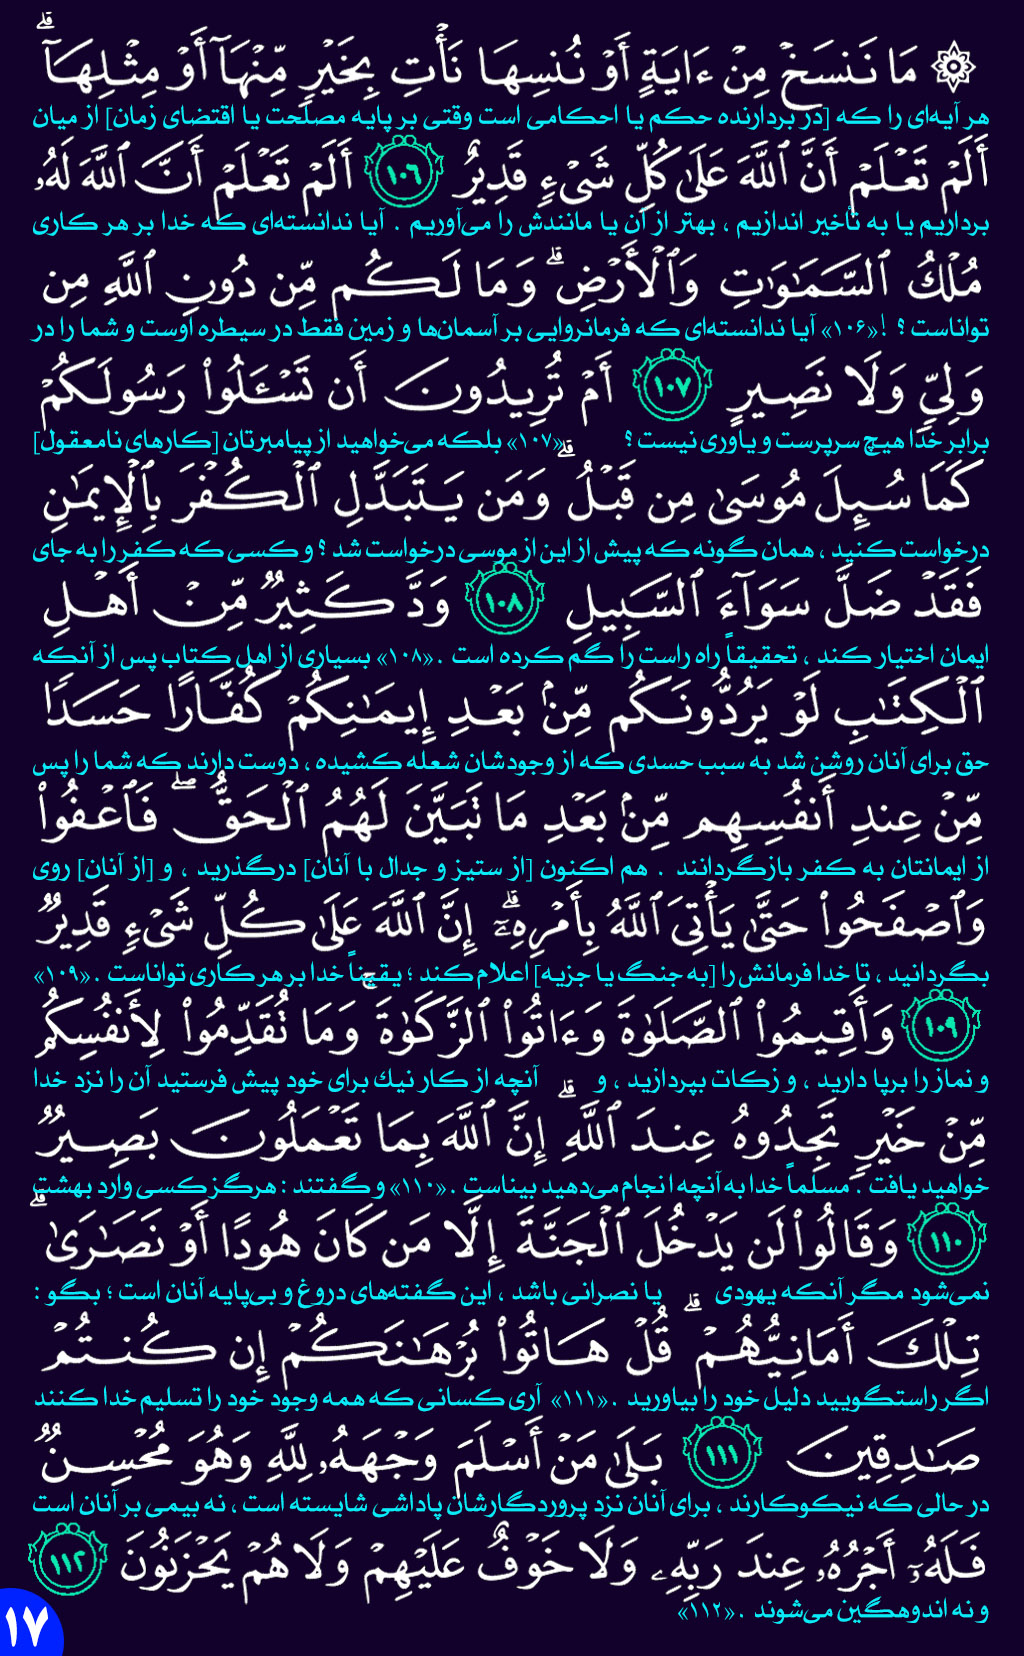 ۞ مَا نَنسَخْ مِنْ ءَايَةٍ أَوْ نُنسِهَا نَأْتِ بِخَيْرٍ مِّنْهَآ أَوْ مِثْلِهَآ ۗ
هر آیه‌ای را که [در بردارنده حکم یا احکامی است وقتی بر پایه مصلحت یا اقتضای زمان] از میان
أَلَمْ تَعْلَمْ أَنَّ ٱللَّهَ عَلَىٰ كُلِّ شَىْءٍ قَدِيرٌ ١٠٦ أَلَمْ تَعْلَمْ أَنَّ ٱللَّهَ لَهُۥ
برداریم یا به تأخیر اندازیم ، بهتر از آن یا مانندش را می‌آوریم . آیا ندانسته‌ای که خدا بر هر کاری
مُلْكُ ٱلسَّمَـٰوَٰتِ وَٱلْأَرْضِ ۗ وَمَا لَكُم مِّن دُونِ ٱللَّهِ مِن
تواناست ؟ !«۱۰۶» آیا ندانسته‌ای که فرمانروایی بر آسمان‌ها و زمین فقط در سیطره اوست و شما را در
وَلِىٍّ وَلَا نَصِيرٍ ١٠٧ أَمْ تُرِيدُونَ أَن تَسْـَٔلُوا۟ رَسُولَكُمْ
برابر خدا هیچ سرپرست و یاوری نیست ؟ «۱۰۷» بلکه می‌خواهید از پیامبرتان [کارهای نامعقول]
كَمَا سُئِلَ مُوسَىٰ مِن قَبْلُ ۗ وَمَن يَتَبَدَّلِ ٱلْكُفْرَ بِٱلْإِيمَـٰنِ
درخواست کنید ، همان گونه که پیش از این از موسی درخواست شد ؟ و کسی که کفر را به جای
فَقَدْ ضَلَّ سَوَآءَ ٱلسَّبِيلِ ١٠٨ وَدَّ كَثِيرٌ مِّنْ أَهْلِ
ایمان اختیار کند ، تحقیقاً راه راست را گم کرده است .«۱۰۸» بسیاری از اهل کتاب پس از آنکه
ٱلْكِتَـٰبِ لَوْ يَرُدُّونَكُم مِّنۢ بَعْدِ إِيمَـٰنِكُمْ كُفَّارًا حَسَدًا
حق برای آنان روشن شد به سبب حسدی که از وجودشان شعله کشیده ، دوست دارند که شما را پس
مِّنْ عِندِ أَنفُسِهِم مِّنۢ بَعْدِ مَا تَبَيَّنَ لَهُمُ ٱلْحَقُّ ۖ فَٱعْفُوا۟
از ایمانتان به کفر بازگردانند . هم اکنون [از ستیز و جدال با آنان] درگذرید ، و [از آنان] روی
وَٱصْفَحُوا۟ حَتَّىٰ يَأْتِىَ ٱللَّهُ بِأَمْرِهِۦٓ ۗ إِنَّ ٱللَّهَ عَلَىٰ كُلِّ شَىْءٍ قَدِيرٌ
بگردانید ، تا خدا فرمانش را [به جنگ یا جزیه] اعلام کند ؛ یقیناً خدا بر هر کاری تواناست .«۱۰۹»
١٠٩ وَأَقِيمُوا۟ ٱلصَّلَوٰةَ وَءَاتُوا۟ ٱلزَّكَوٰةَ ۚ وَمَا تُقَدِّمُوا۟ لِأَنفُسِكُم
و نماز را برپا دارید ، و زکات بپردازید ، و آنچه از کار نیک برای خود پیش فرستید آن را نزد خدا
مِّنْ خَيْرٍ تَجِدُوهُ عِندَ ٱللَّهِ ۗ إِنَّ ٱللَّهَ بِمَا تَعْمَلُونَ بَصِيرٌ
خواهید یافت . مسلماً خدا به آنچه انجام می‌دهید بیناست .«۱۱۰» و گفتند : هرگز کسی وارد بهشت
١١٠ وَقَالُوا۟ لَن يَدْخُلَ ٱلْجَنَّةَ إِلَّا مَن كَانَ هُودًا أَوْ نَصَـٰرَىٰ ۗ
نمی‌شود مگر آنکه یهودی یا نصرانی باشد ، این گفته‌های دروغ و بی‌پایه آنان است ؛ بگو :
تِلْكَ أَمَانِيُّهُمْ ۗ قُلْ هَاتُوا۟ بُرْهَـٰنَكُمْ إِن كُنتُمْ
اگر راستگویید دلیل خود را بیاورید .«۱۱۱» آری کسانی که همه وجود خود را تسلیم خدا کنند
صَـٰدِقِينَ ١١١ بَلَىٰ مَنْ أَسْلَمَ وَجْهَهُۥ لِلَّهِ وَهُوَ مُحْسِنٌ
در حالی که نیکوکارند ، برای آنان نزد پروردگارشان پاداشی شایسته است ، نه بیمی بر آنان است
فَلَهُۥٓ أَجْرُهُۥ عِندَ رَبِّهِۦ وَلَا خَوْفٌ عَلَيْهِمْ وَلَا هُمْ يَحْزَنُونَ ١١٢
و نه اندوهگین می‌شوند .«۱۱۲»
١٧